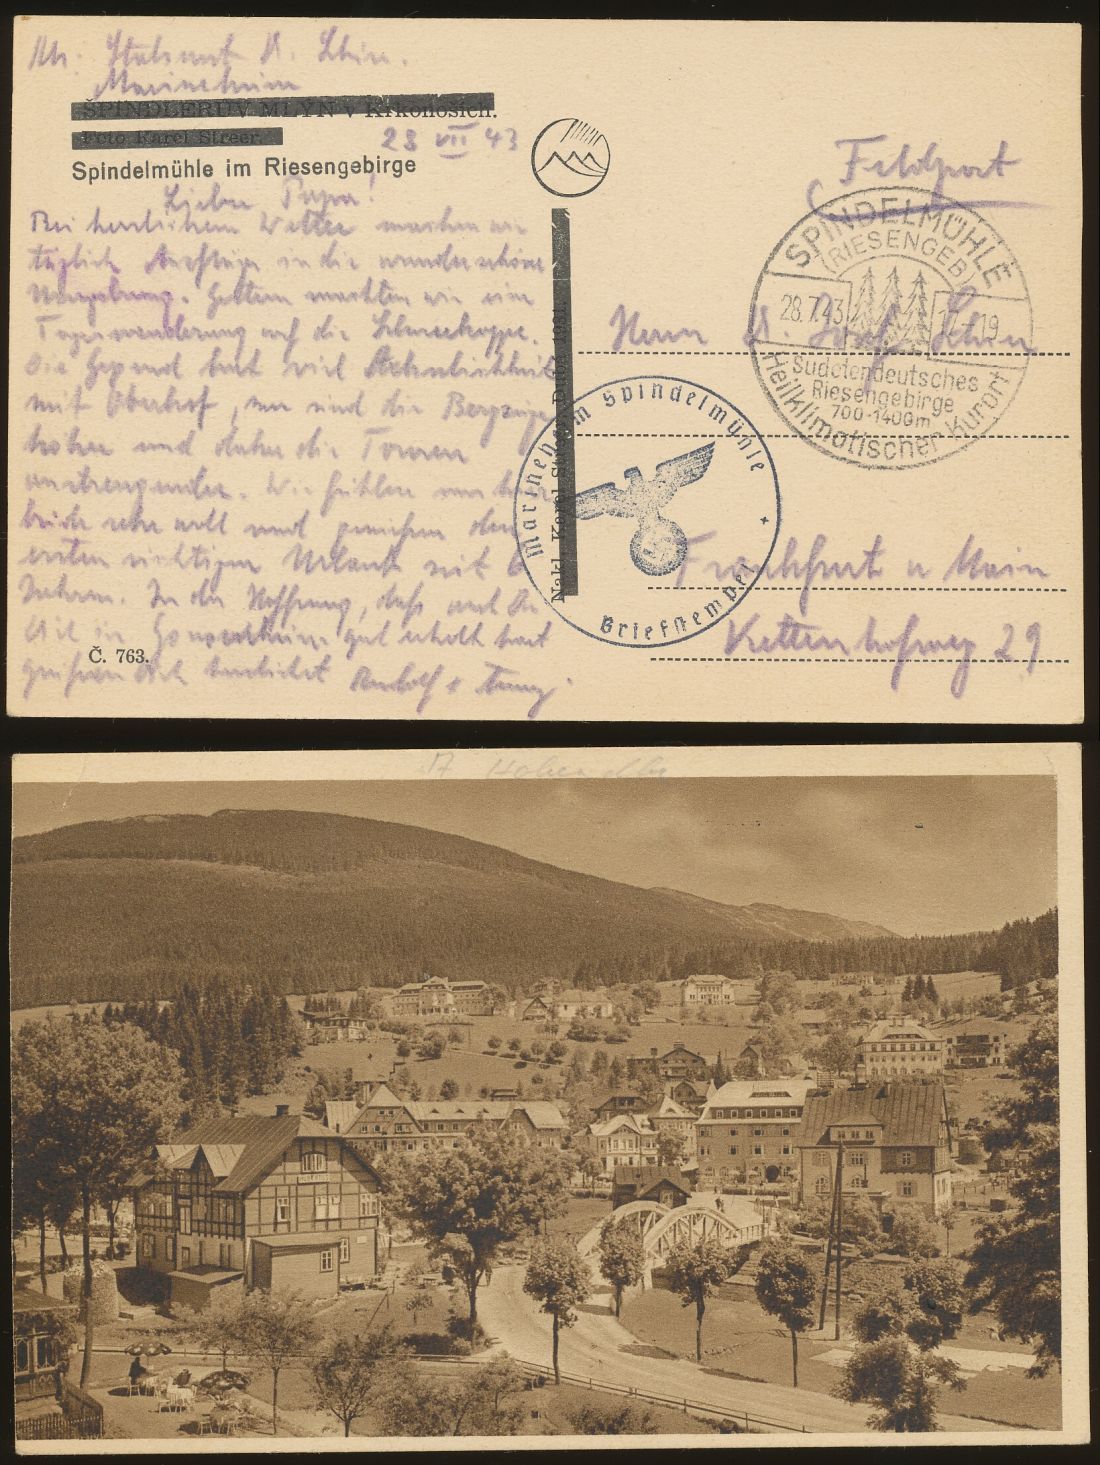 Marineheim
ŠPINDLERŮV MLÝN v Krkonoších.
Foto Karel Streer.
28 VII 43
Spindelmühle im Riesengebirge
Lieber Papa!
Bei herrlichem Wetter machen wir
täglich Ausflüge in die wunderschöne
Umgebung. Gestern machten wir eine
Tageswanderung auf die Schneekoppe.
Die Gegend hat viel Ähnlichkeit
mit Oberhof, nur sind die Bergzüge
höher und daher die Touren
anstrengender. Wir fühlen uns hier
beide sehr wohl und geniessen den
ersten richtigen Urlaub seit 6
Jahren. In der Hoffnung, dass auch Du
Dich in gut erholt hast
grüssen Dich herzlichst Rudolf +
Č. 763.
Feldpost
SPINDELMÜHLE
(RIESENGEB)
28.7.43 17-19
Sudetendeutsches
Riesengebirge
700-1400m
Heilklimatischer Kurort
Herrn Josef
Marineheim Spindelmühle
Briefstempel
Nakl. Karel
Frankfurt a Main
Kettenhofweg 29
Hohenelbe